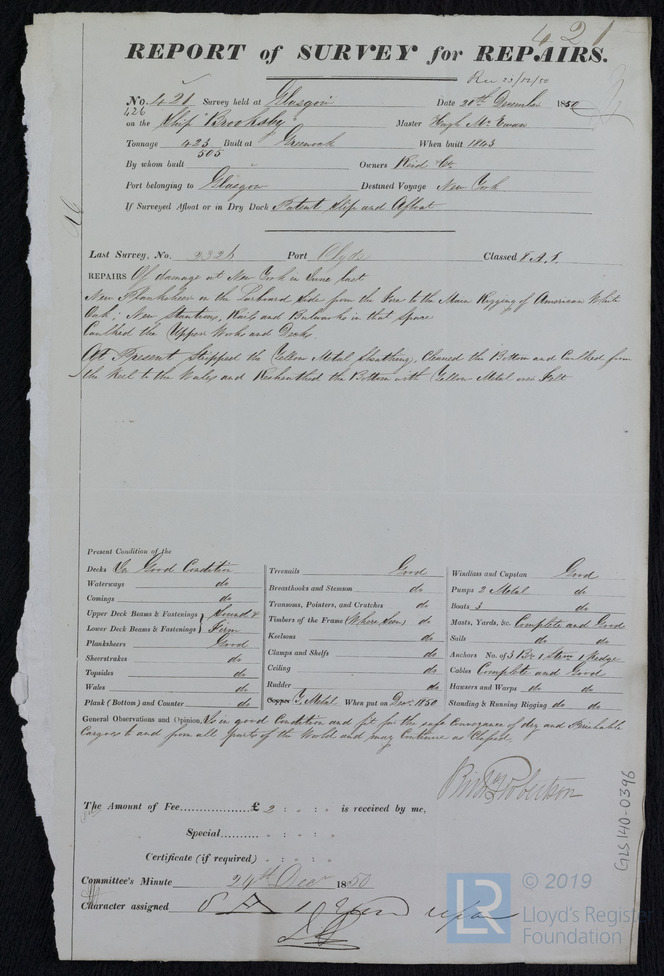 421
REPORT of SURVEY for REPAIRS.
Rec 23/12/50
No. 421 Survey held at Glasgow Date 20th December 1850
426
on the Ship "Brooksby" Master Hugh McEwan
Tonnage 423 Built at Greenock When built 1843
505
By whom built " Owners Reid & Co
Port belonging to Glasgow Destined Voyage New York
If Surveyed Afloat or in Dry Dock Patent Slip and Afloat
Last Survey, No. 2324 Port Clyde Classed 8 A.1.
REPAIRS Of damage at New York in June last
New Planksheer on the Larboard Side from the Fore to the Main Rigging of American White
Oak; New Stantions, Rails and Bulwarks in that space
Caulked the Upper Works and Decks.
At Present Stripped the Yellow Metal Sheathing, Cleaned the Bottom and Caulked from
the Keel to the Wales and Resheathed the Bottom with Yellow Metal over Felt
Present Condition of the
Decks In Good Condition
Waterways do
Comings do
Upper Deck Beams & Fastenings Sound &
Lower Deck Beams & Fastenings Firm
Planksheers Good
Sheerstrakes do
Topsides do
Wales do
Plank (Bottom) and Counter do
Treenails Good
Breasthooks and Stemson do
Transoms, Pointers, and Crutches do
Timbers of the Frame (Where seen) do
Keelsons do
Clamps and Shelfs do
Ceiling do
Rudder do
Copper Y. Metal When put on Decr. 1850
Windlass and Capstan Good
Pumps 2 Metal do
Boats 3 do
Masts, Yards, &c. Complete and Good
Sails do do
Anchors No. of 3 Br. 1 Stem 1 Kedge
Cables Complete and Good
Hawsers and Warps do do
Standing & Running Rigging do do
General Observations and Opinion Is in good Condition and fit for the safe Conveyance of dry and Perishable
Cargoes to and from all parts of the World and may Continue as Classed.
Robertson
The Amount of Fee £ 2 : . : . is received by me,
Special
Certificate (if required)
Committee's Minute 24th Decr 1850
Character assigned 8 A 1
GLS140-0396
LR
© 2019
Lloyd's Register
Foundation